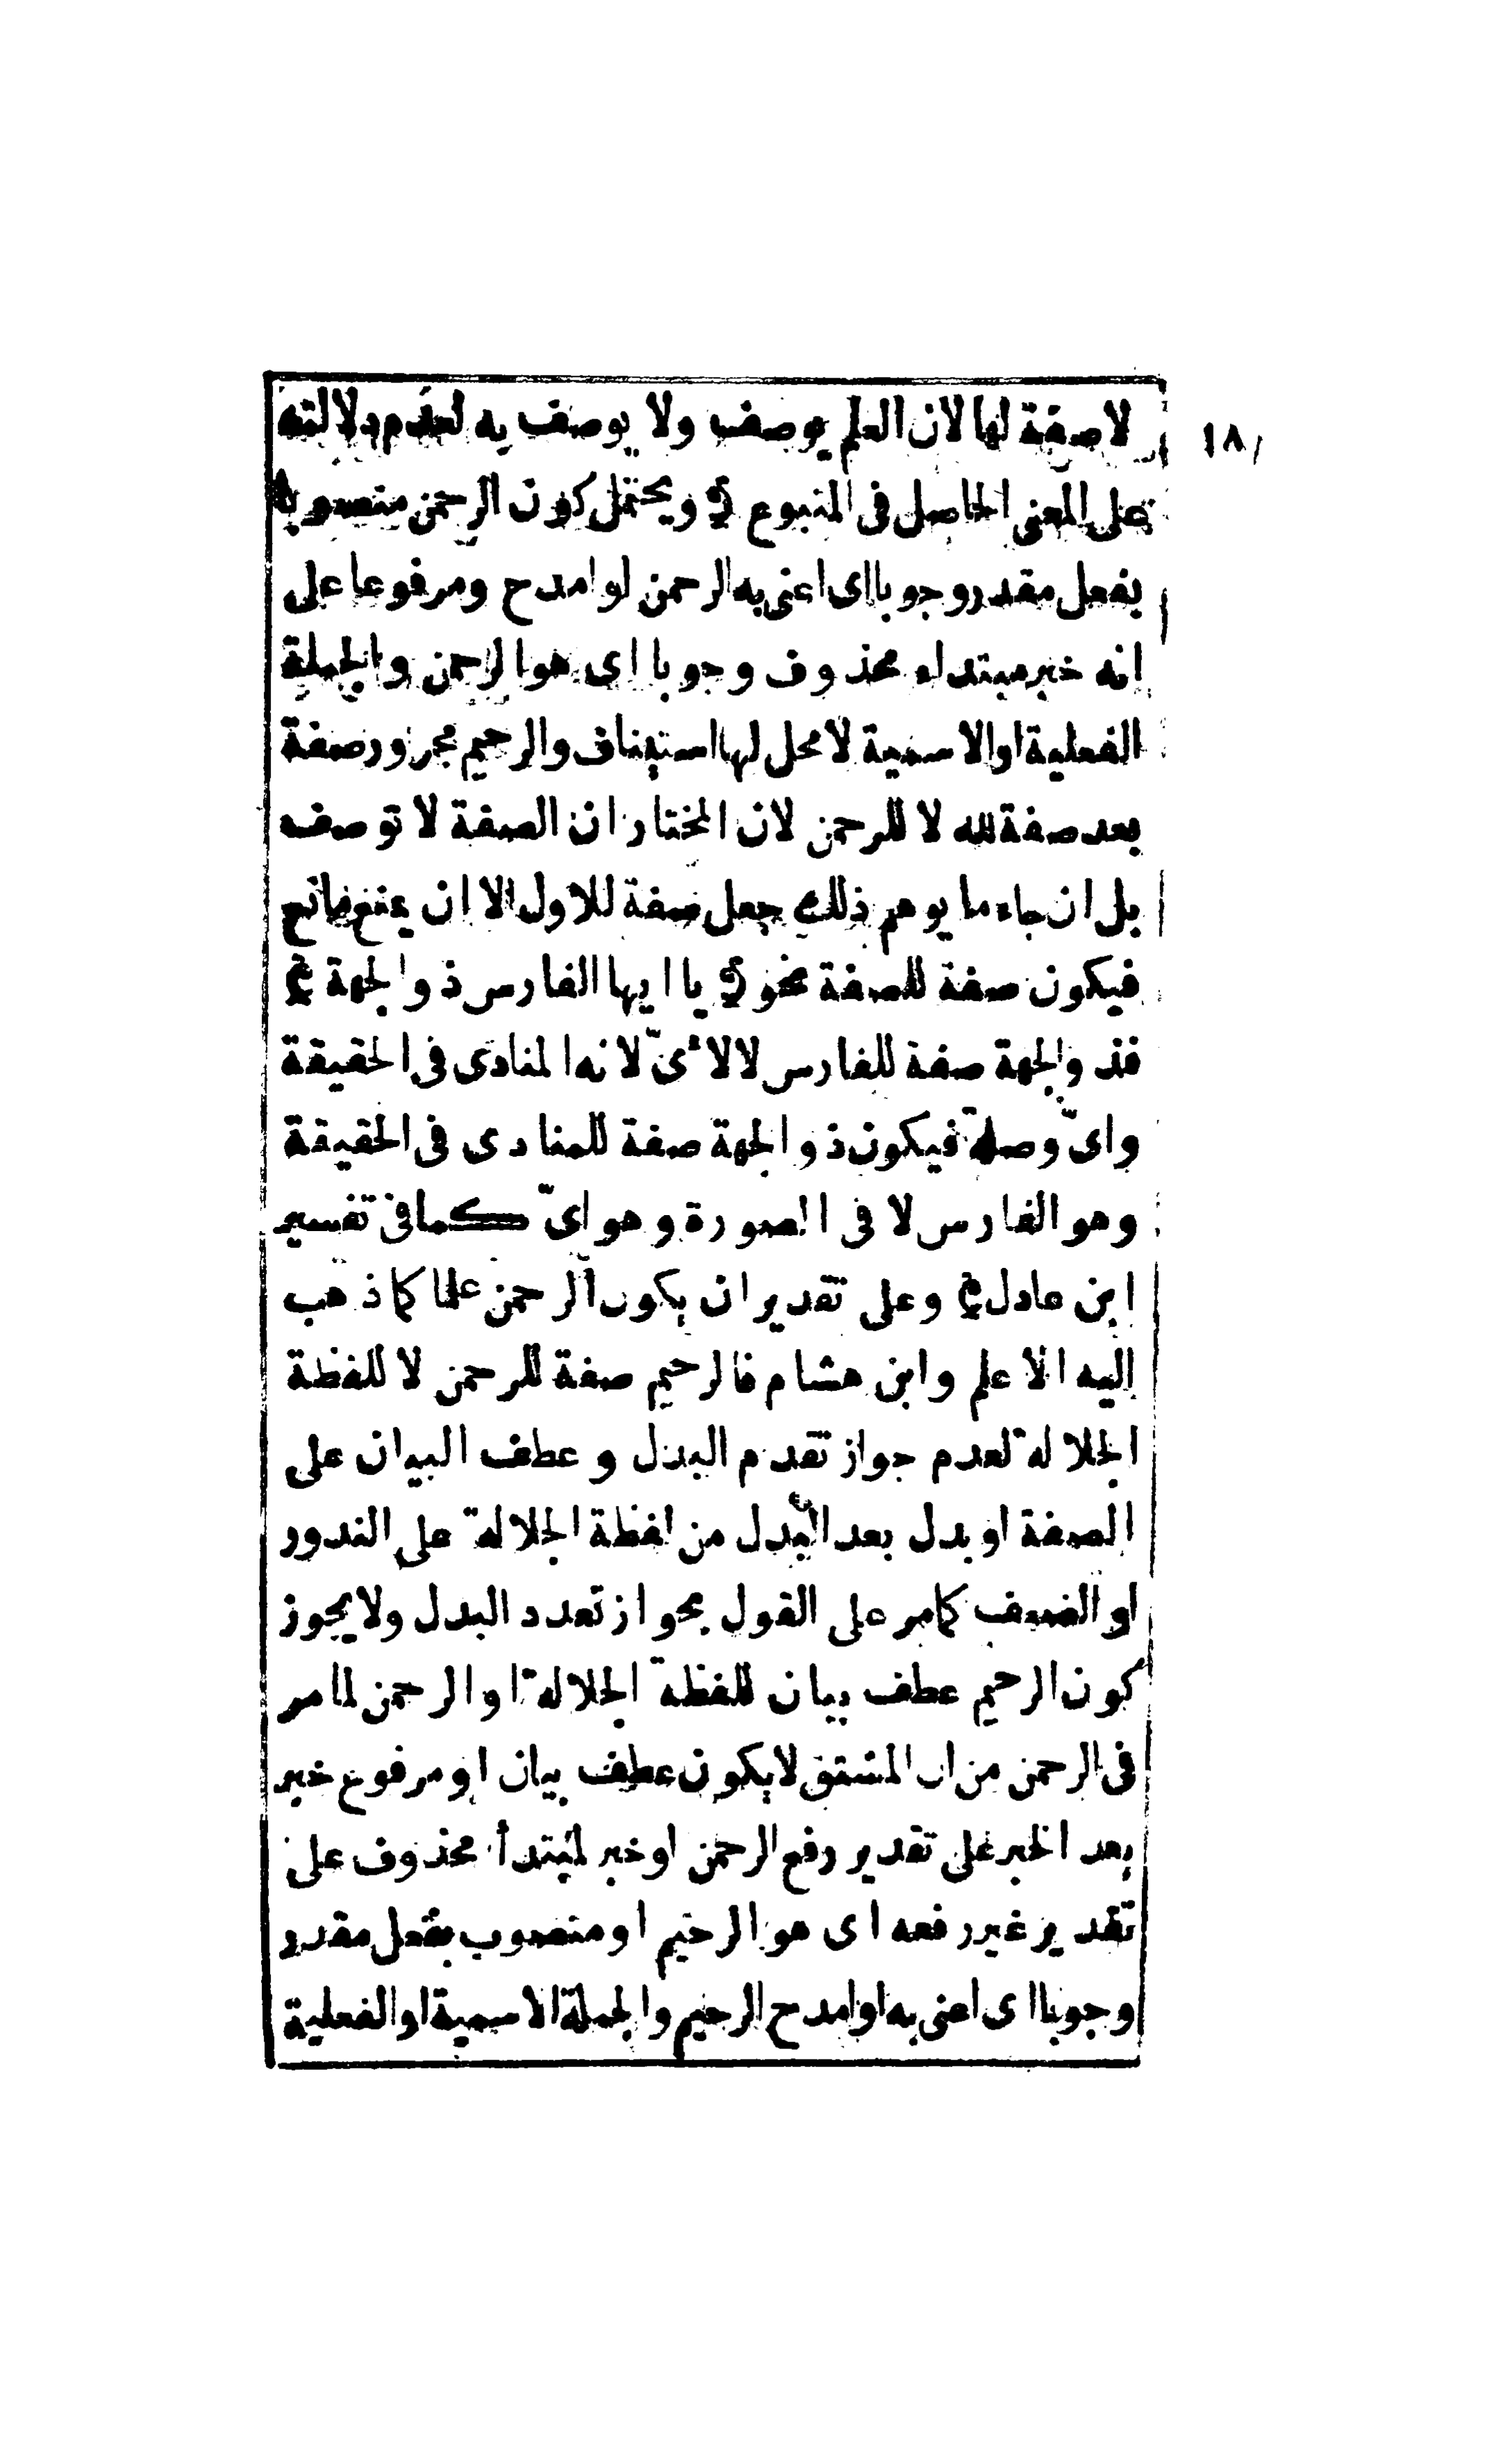 ١٨
لا صفة لها لان العلم يوصف ولا يوصف به لعدم دلالته
على المعنى الحاصل فى المتبوع ويحتمل كون الرحمن منصوبا
بفعل مقدر وجوبا اى اعنى به الرحمن او امدح ومرفوعا على
انه خبر مبتداء محذوف وجوبا اى هو الرحمن والجملة
الفعلية او الاسمية لا محل لها استيناف والرحيم مجرور صفة
بعد صفة لله لا للرحمن لان المختار ان الصفة لا توصف
بل ان جاء ما يوهم ذلك جعل صفة للاول الا ان يمنع مانع
فيكون صفة للصفة نحو يا ايها الفارس ذو الجهة
فذو الجهة صفة للفارس لا لاىّ لانه المنادى فى الحقيقة
واىّ وصلة فيكون ذو الجهة صفة للمنادى فى الحقيقة
وهو الفارس لا فى الصورة وهو اىّ كما فى تفسير
ابن عادل وعلى تقدير ان يكون الرحمن علما كما ذهب
اليه الاعلم وابن هشام فالرحيم صفة للرحمن لا للفظة
الجلالة لعدم جواز تقدم البدل وعطف البيان على
الصفة او بدل بعد البدل من لفظة الجلالة على الندور
او الضعف كما مر على القول بجواز تعدد البدل ولا يجوز
كون الرحيم عطف بيان للفظة الجلالة او الرحمن لما مر
فى الرحمن من ان المشتق لا يكون عطف بيان او مرفوع خبر
بعد الخبر على تقدير رفع الرحمن او خبر لمبتدأ محذوف على
تقدير غير رفعه اى هو الرحيم او منصوب بفعل مقدر
وجوبا اى اعنى به او امدح الرحيم والجملة الاسمية او الفعلية